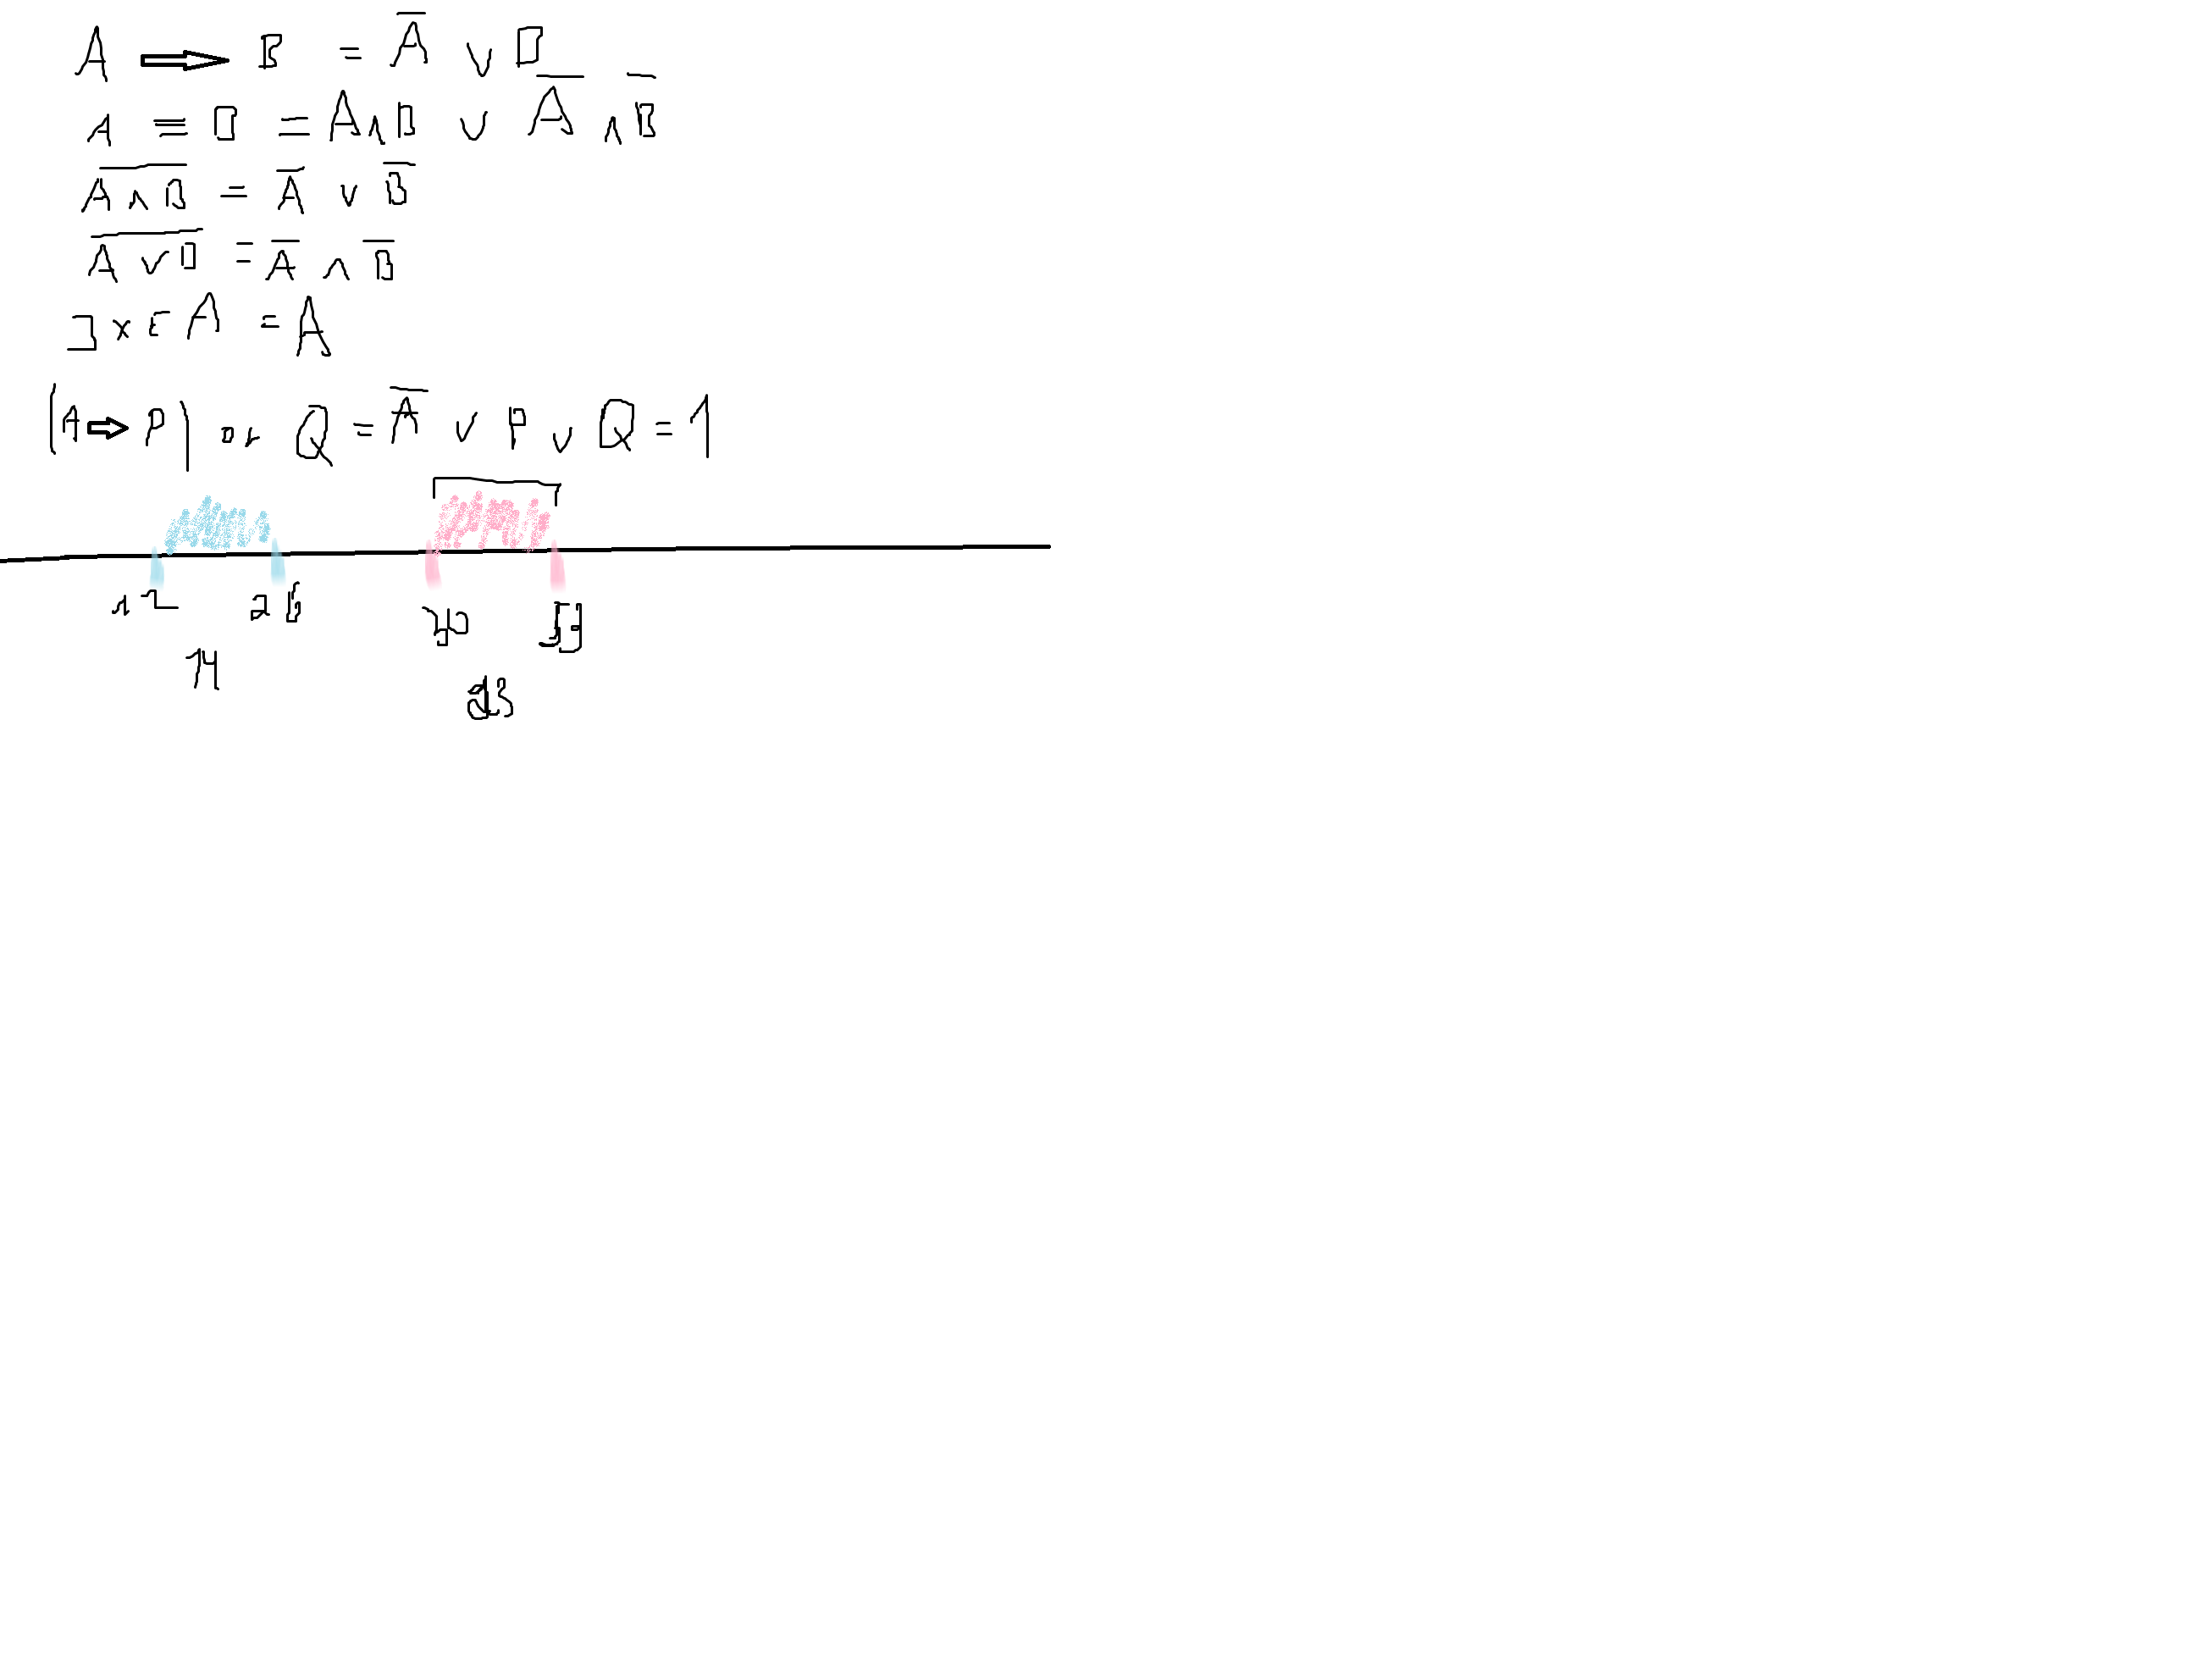 A ⇒ B = A̅ ∨ B
A ≡ B = A ∧ B ∨ A̅ ∧ B̅
A̅ ̅∧̅ ̅B̅ = A̅ ∨ B̅
A̅ ̅∨̅ ̅B̅ = A̅ ∧ B̅
x ∈ A = A
(A ⇒ P) or Q = A̅ ∨ P ∨ Q = 1
12 26 53
14